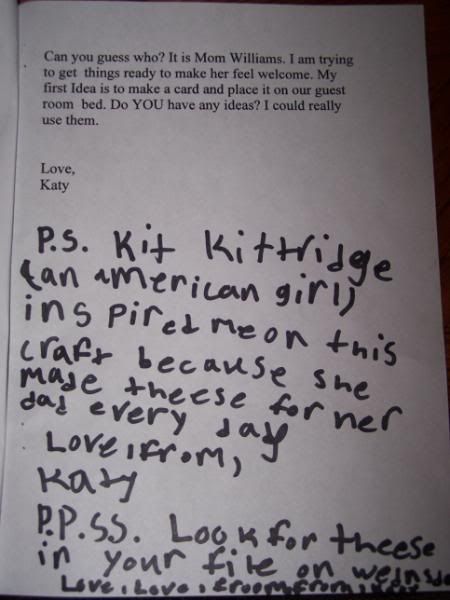 Can you guess who? It is Mom Williams. I am trying
to get things ready to make her feel welcome. My
first Idea is to make a card and place it on our guest
room bed. Do YOU have any ideas? I could really
use them.
Love,
Katy
P.S. Kit Kittridge
(an american girl)
inspired me on this
craft because she
made theese for her
dad every day
Love, from,
Katy
P.P.SS. Look for theese
in your file on
Love, Love, froom, from,